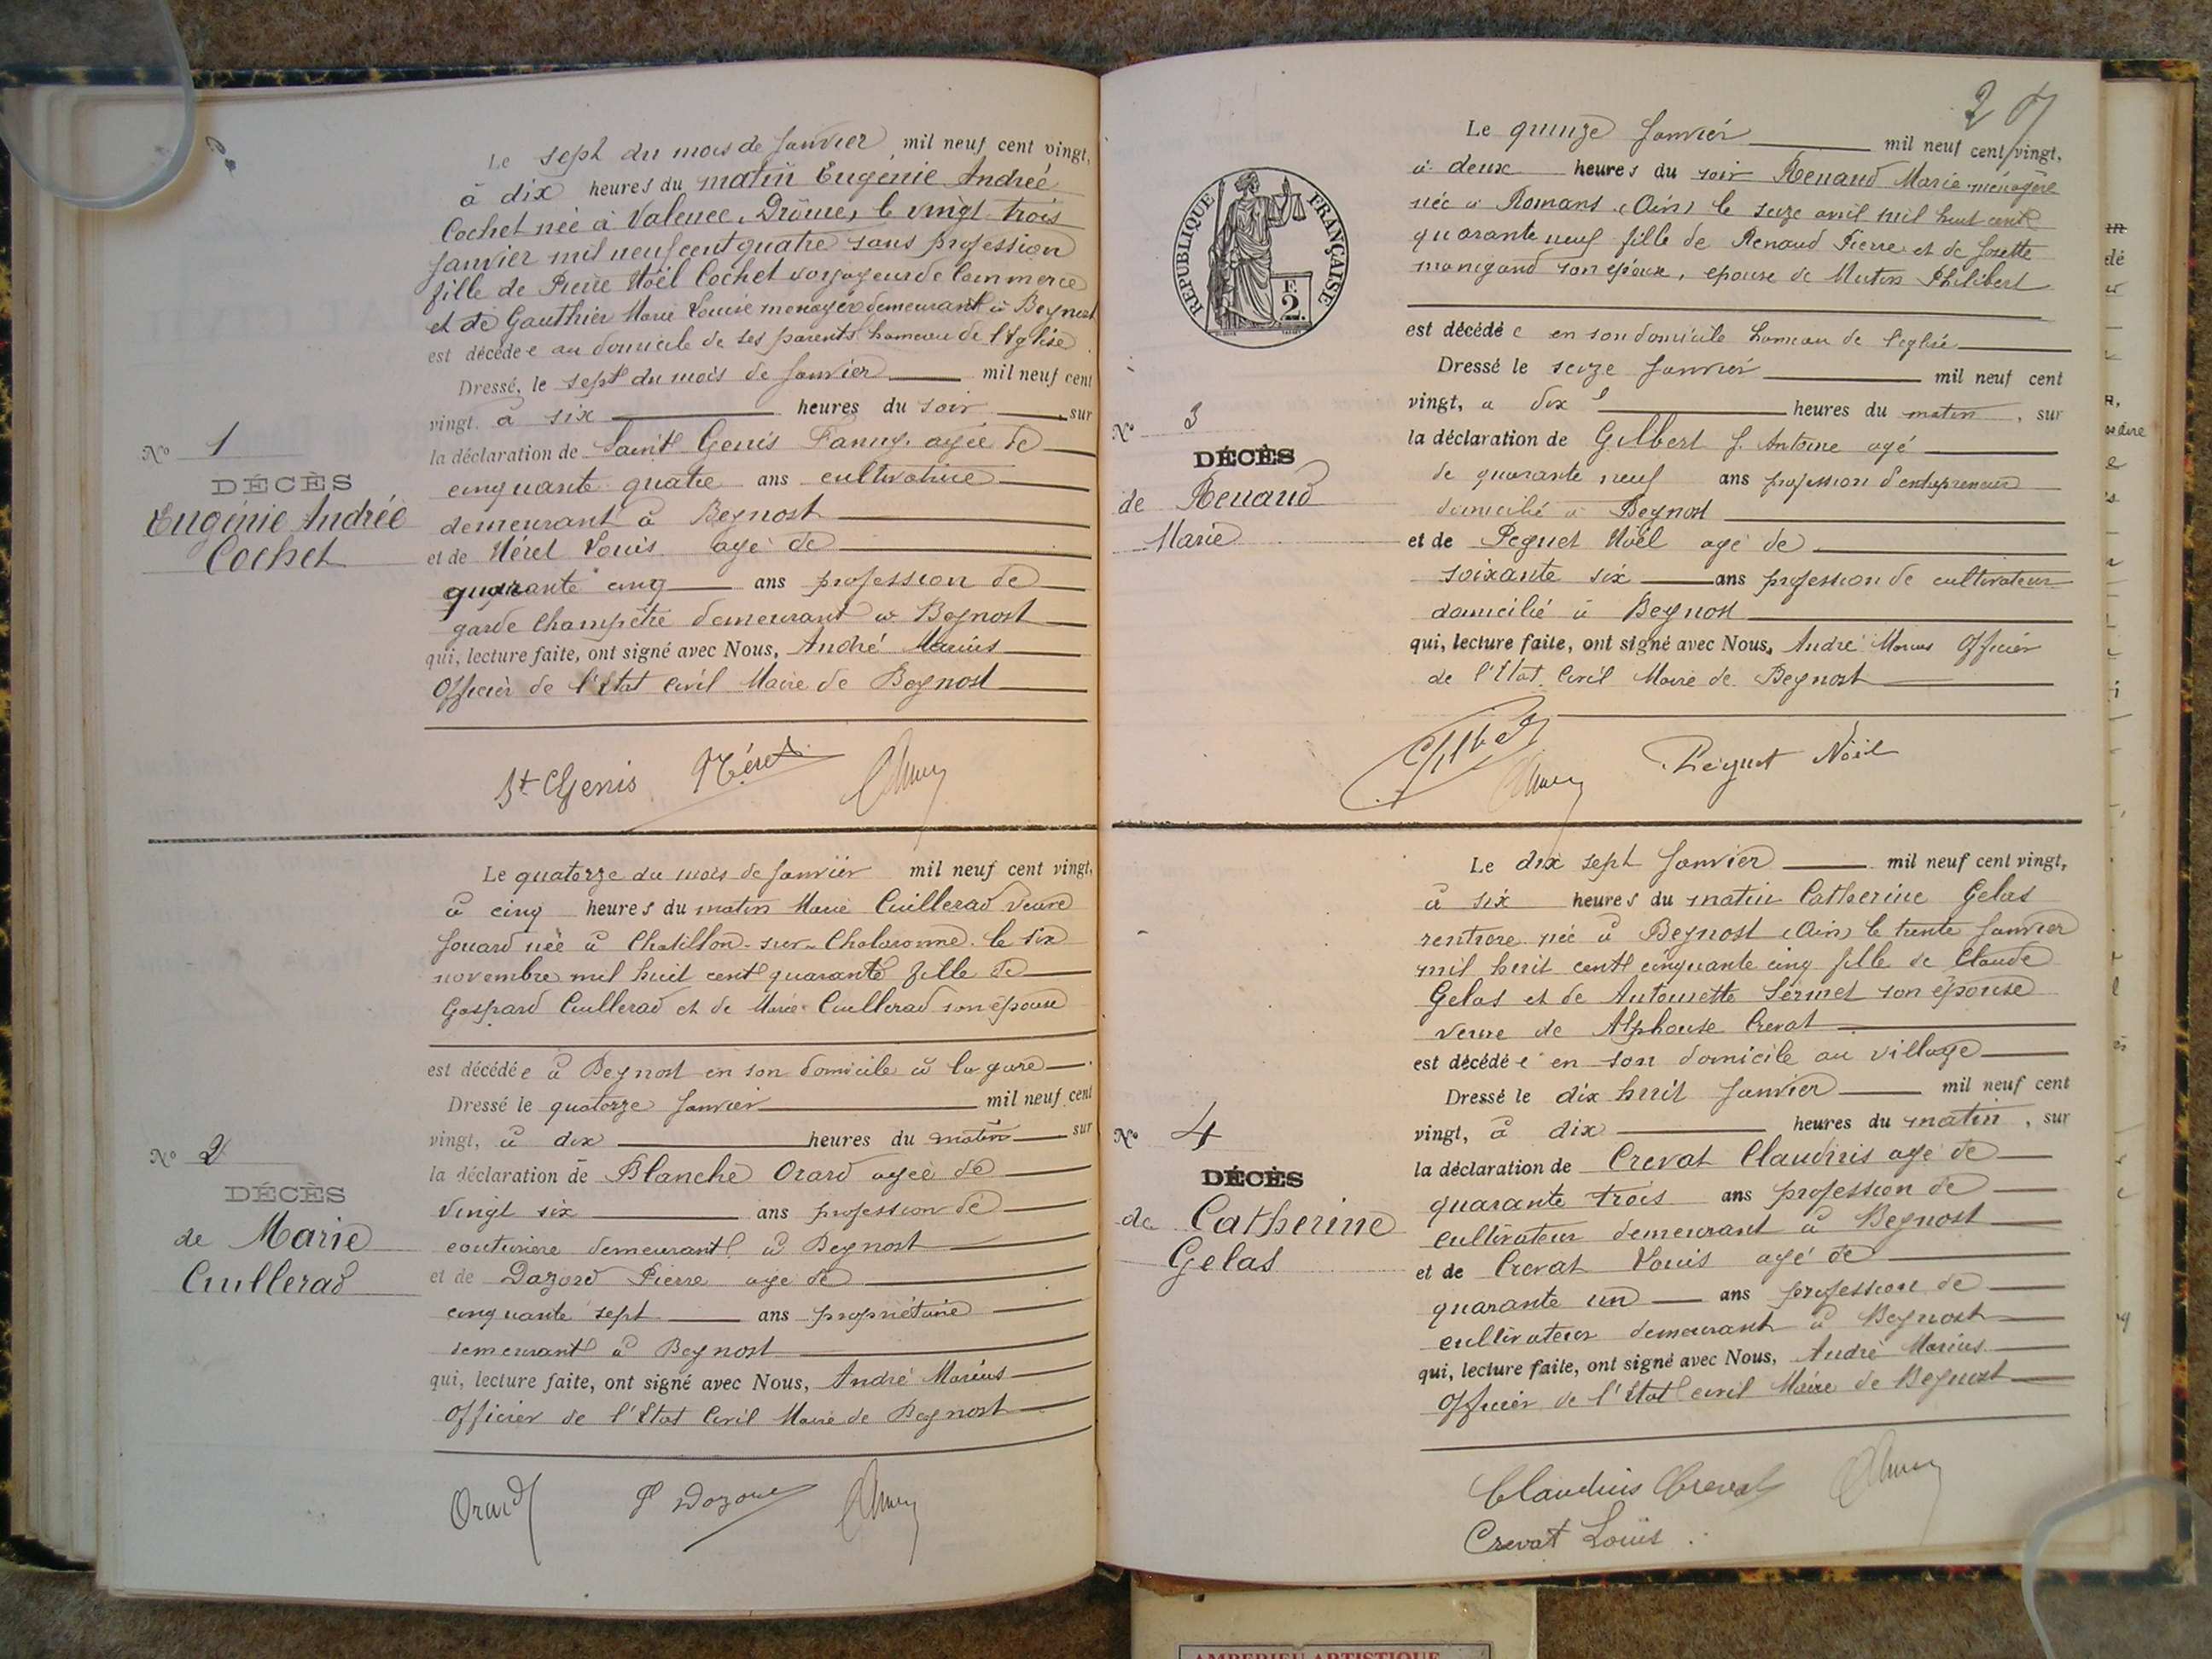 Le sept du mois de Janvier mil neuf cent vingt,
à dix heures du matin Eugénie Andrée
Cochet née à Valence, Drôme, le vingt trois
Janvier mil neuf cent quatre sans profession
fille de Pierre Noël Cochet voyageur de Commerce
et de Gauthier Marie Louise menagère demeurant à Beynost
est décédée au domicile de ses parents hameau de l'Eglise
Dressé, le sept du mois de Janvier mil neuf cent
vingt, à six heures du soir, sur
la déclaration de Saint Genis Fanny agée de
cinquante quatre ans cultivatrice
demeurant à Beynost
et de Néret Louis agé de
quarante cinq ans profession de
garde Champêtre demeurant à Beynost
qui, lecture faite, ont signé avec Nous, André Marius
Officier de l'Etat Civil Maire de Beynost
No 1
DÉCÈS
Eugénie Andrée
Cochet
St Genis Néret
Le quatorze du mois de Janvier mil neuf cent vingt,
à cinq heures du matin Marie Cuillerad veuve
Jouard née à Chatillon-sur-Chalaronne le six
novembre mil huit cent quarante fille de
Gaspard Cuillerad et de Marie Cuillerad son épouse
est décédée à Beynost en son domicile à la gare
Dressé le quatorze Janvier mil neuf cent
vingt, à dix heures du matin sur
la déclaration de Blanche Orard agée de
vingt six ans profession de
couturière demeurant à Beynost
et de Dazord Pierre age de
cinquante sept ans propriétaire
demeurant à Beynost
qui, lecture faite, ont signé avec Nous, André Marius
Officier de l'Etat Civil Maire de Beynost
No 2
DÉCÈS
de Marie
Cuillerad
Orard
2
Le quinze Janvier mil neuf cent vingt,
à deux heures du soir Renaud Marie ménagère
née à Romans (Ain) le seize avril mil huit cent
quarante neuf fille de Renaud Pierre et de Josette
son épouse, epouse de Mutin Philibert
est décédée en son domicile hameau de l'eglise
Dressé le seize Janvier mil neuf cent
vingt, à dix heures du matin, sur
la déclaration de Gilbert J. Antoine agé
de quarante neuf ans profession d'entrepreneur
domicilié à Beynost
et de Peguet Noël agé de
soixante six ans profession de cultivateur
domicilié à Beynost
qui, lecture faite, ont signé avec Nous, André Marius Officier
de l'Etat Civil Maire de Beynost
RÉPUBLIQUE FRANÇAISE
F.
2.
No 3
DÉCÈS
de Renaud
Marie
Gilbert Peguet Noël
Le dix sept Janvier mil neuf cent vingt,
à six heures du matin Catherine Gelas
rentière née à Beynost (Ain) le trente Janvier
mil huit cent cinquante cinq fille de Claude
Gelas et de Antoinette Sermet son épouse
veuve de Alphonse Crevat
est décédée en son domicile au village
Dressé le dix huit Janvier mil neuf cent
vingt, à dix heures du matin, sur
la déclaration de Crevat Claudius agé de
quarante trois ans profession de
cultivateur demeurant à Beynost
et de Crevat Louis agé de
quarante un ans profession de
cultivateur demeurant à Beynost
qui, lecture faite, ont signé avec Nous, André Marius
Officier de l'Etat civil Maire de Beynost
No 4
DÉCÈS
de Catherine
Gelas
Claudius Crevat
Crevat Louis
AMBERIEU ARTISTIQUE